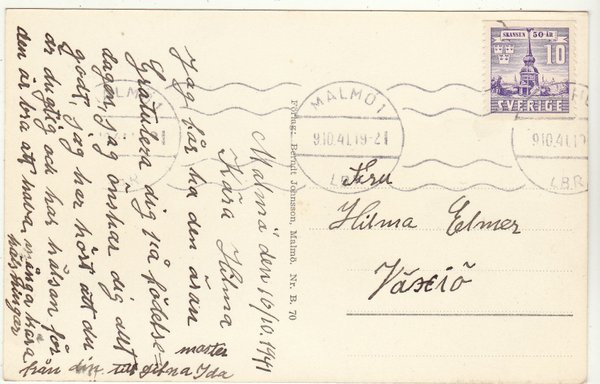 Malmö den 10/10. 1941
Kära Hilma
Jag får ha den äran
Gratulera dig på födelse=
dagen, jag önskar dig allt
godt, jag har hört att du
är dugtig och har hälsan för
den är bra att hava, många kära
hälsningar
från din moster
Ida
SKANSEN 50 ÅR
10
SVERIGE
MALMÖ 1
9.10.41.19-21
L.B.R.
MALMÖ 1
9.10.41.19-21
L.B.R.
9.10.41.19
L.B.R
Fru
Hilma Elmer
Växiö
Förlag: Berndt Johnsson, Malmö. Nr. B. 70